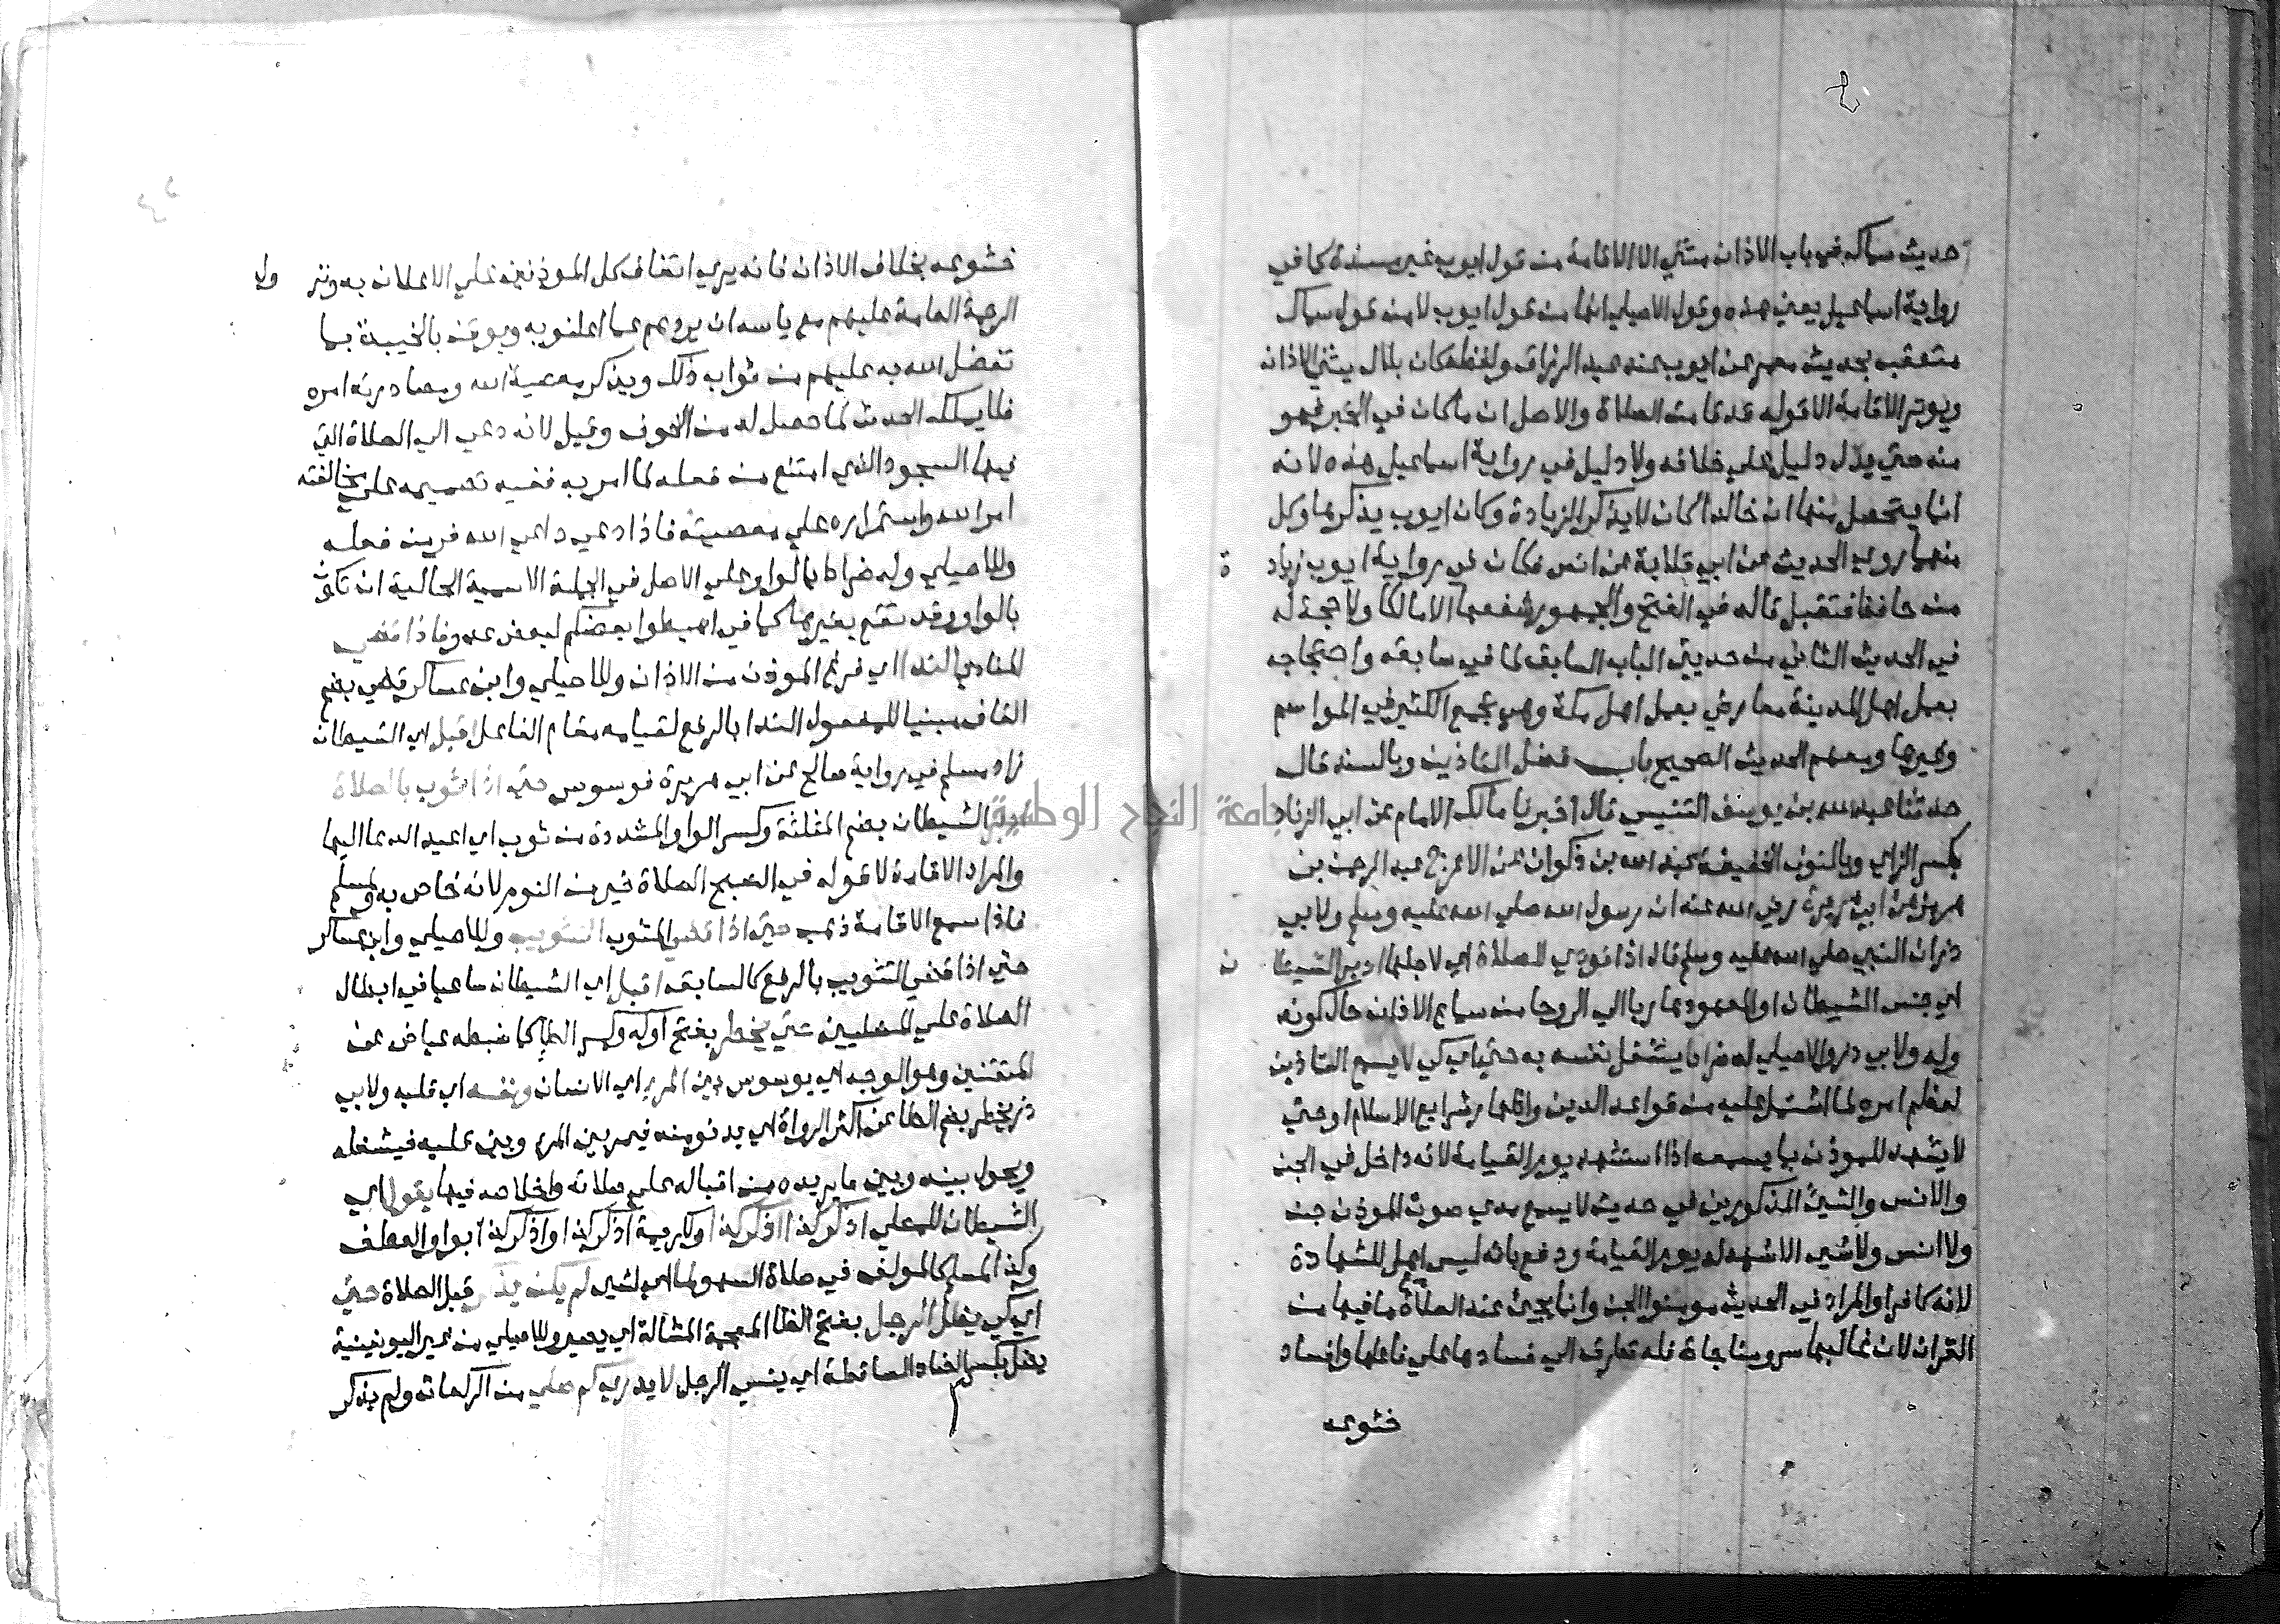 حديث سماك في باب الاذان مثني الا الاقامة من قول ايوب غير مسندة كما في
رواية اسماعيل يعني هذه وقول الاصيلي انها من قول ايوب لا من قول سماك
متعقب بحديث معمر عن ايوب عند عبد الرزاق ولفظه كان بلال يثني الاذان
ويوتر الاقامة الا قوله قد قامت الصلاة والاصل ان ما كان في الخبر فهو
منه حتي يدل دليل علي خلافه ولا دليل في رواية اسماعيل هذه لانه
انما يتحصل منها ان خالدا كان لا يذكر الزيادة وكان ايوب يذكرها وكل
منهما روي الحديث عن ابي قلابة عن انس فكان في رواية ايوب زيادة
من حافظ فتقبل قاله في الفتح والجمهور شفعها الا مالكا ولا حجة له
في الحديث الثاني من حديثي الباب السابق لما في سابقه واحتجاجه
بعمل اهل المدينة معارض بعمل اهل مكة وهي تجمع الكثير في المواسم
وغيرها ومعهم الحديث الصحيح باب فضل التاذين وبالسند قال
حدثنا عبد الله بن يوسف التنيسي قال اخبرنا مالك الامام عن ابي الزناد
بكسر الزاي وبالنون الخفيفة عبد الله بن ذكوان عن الاعرج عبد الرحمن بن
هرمز عن ابي هريرة رضي الله عنه ان رسول الله صلي الله عليه وسلم ولابي
ذر ان النبي صلي الله عليه وسلم قال اذا نودي للصلاة اي لاجلها ادبر الشيطان
اي جنس الشيطان او المعهود هاربا الي الروحا من سماع الاذان حال كونه
وله ولابي ذر والاصيلي له ضراط يشغل نفسه به حتي اي كي لا يسمع التاذين
لعظم امره لما اشتمل عليه من قواعد الدين واظهار شرايع الاسلام او حتي
لا يشهد للموذن بما يسمعه اذا استشهد يوم القيامة لانه داخل في الجن
والانس والشيئ المذكورين في حديث لا يسمع مدي صوت الموذن جن
ولا انس ولا شيئ الا شهد له يوم القيامة ودفع بانه ليس اهل للشهادة
لانه كافر او المراد في الحديث مومنوا الجن وانما يجيئ عند الصلاة مع ما فيها من
القران لان غالبها سر ومناجاة فله تطرق الي فسادها علي فاعلها وافساد
خشوعه
خشوعه بخلاف الاذان فانه يري اتفاق كل الموذنين علي الاعلان به ونزول
الرحمة العامة عليهم مع ياسه ان يردهم عما اعلنوا به ويوقن بالخيبة بما
تفضل الله به عليهم من ثواب ذلك ويذكر معصية الله ومضادرته امره
فلا يملك الحدث لما حصل له من الخوف وقيل لانه دعي الي الصلاة التي
فيها السجود الذي امتنع من فعله لما امر به ففيه تصميمه علي مخالفته
امر الله واستمراره علي معصيته فاذا دعي داعي الله فر من فعله
وللاصيلي وله ضراط بالواو علي الاصل في الجملة الاسمية الحالية ان تكون
بالواو وقد تقع بغيرها كما في اهبطوا بعضكم لبعض عدو فاذا قضي
المنادي الندا اي فرغ الموذن من الاذان وللاصيلي وابن عساكر قضي بضم
القاف مبنيا للمفعول الندا بالرفع لقيامه مقام الفاعل اقبل اي الشيطان
زاد مسلم في رواية صالح عن ابي هريرة فوسوس حتي اذا ثوب بالصلاة
ادبر الشيطان بضم المثلثة وكسر الواو المشددة من ثوب اي اعيد الدعا اليها
والمراد الاقامة لا قوله في الصبح الصلاة خير من النوم لانه خاص به ولمسلم
فاذا سمع الاقامة ذهب حتي اذا قضي المثوب التثويب وللاصيلي وابن عساكر
حتي اذا قضي التثويب بالرفع كالسابق اقبل اي الشيطان ساعيا في ابطال
الصلاة علي المصليين حتي يخطر بفتح اوله وكسر الطا كما ضبطه عياض عن
المتقنين وهو الوجه اي يوسوس بين المرء اي الانسان ونفسه اي قلبه ولابي
ذر يخطر بضم الطا عن اكثر الرواة اي يدنو منه فيمر بين المرء وبين قلبه فيشغله
ويحول بينه وبين ما يريده من اقباله علي صلاته واخلاصه فيها يقول اي
الشيطان للمصلي اذكر كذا اذكر كذا ولكريمة اذكر كذا واذكر كذا بواو العطف
وكذا لمسلم كالمولف في صلاة السهو لما اي لشيئ لم يكن يذكر قبل الصلاة حتي
اي كي يظل الرجل بفتح الظا المعجمة المشالة اي يصير وللاصيلي من غير اليونينية
يضل بكسر الضاد الساقطة اي ينسي الرجل لا يدري كم صلي من الركعات ولم يذكر
جامعة النجاح الوطنية